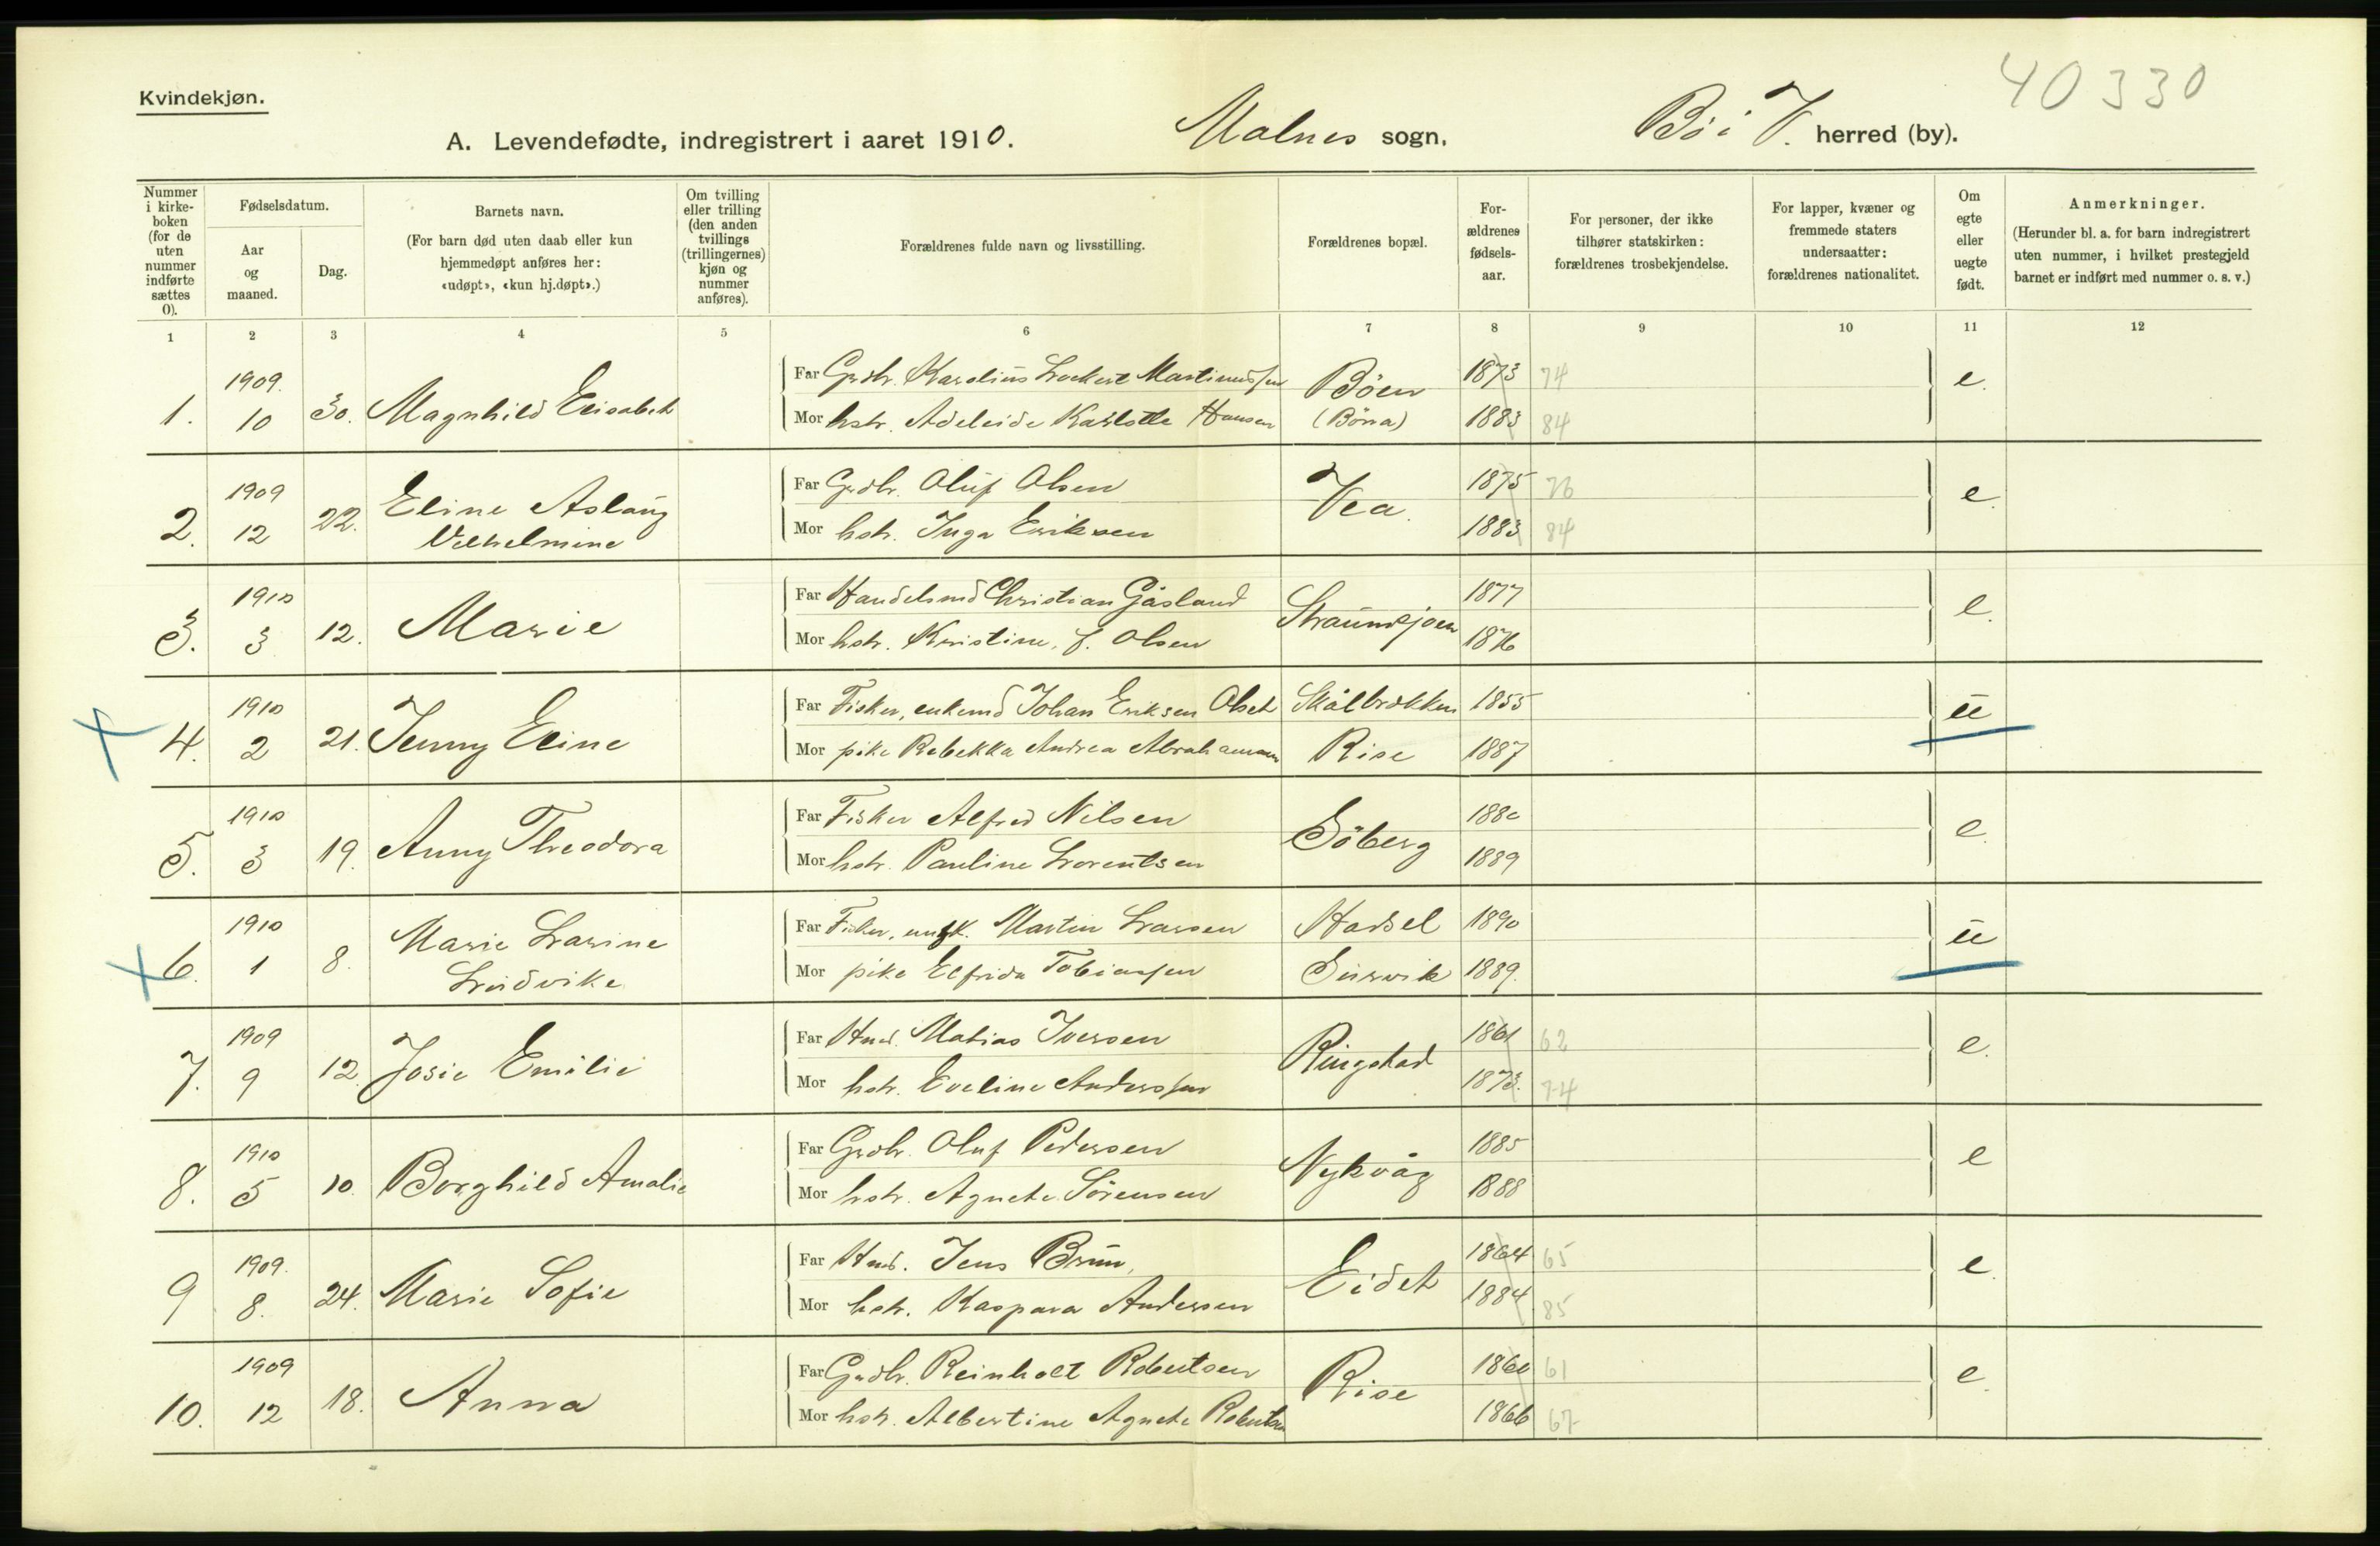 40330
Kvindekjøn.
A. Levendefødte, indregistrert i aaret 1910. Malnes sogn, Bø i V. herred (by).
Nummer i kirke-boken (for de uten nummer indførte sættes 0).
Fødselsdatum.
Aar og maaned.
Dag.
Barnets navn.
(For barn død uten daab eller kun hjemmedøpt anføres her: «udøpt», «kun hj.døpt».)
Om tvilling eller trilling (den anden tvillings (trillingernes) kjøn og nummer anføres).
Forældrenes fulde navn og livsstilling.
Forældrenes bopæl.
For-ældrenes fødsels-aar.
For personer, der ikke tilhører statskirken: forældrenes trosbekjendelse.
For lapper, kvæner og fremmede staters undersaatter: forældrenes nationalitet.
Om egte eller uegte født.
Anmerkninger.
(Herunder bl. a. for barn indregistrert uten nummer, i hvilket prestegjeld barnet er indført med nummer o. s. v.)
1 2 3 4 5 6 7 8 9 10 11 12
1909. Far Grdbr. Karelius Lockert Martinussen Böen 1873 74 e.
1. 10 30. Magnhild Elisabet Mor hstr. Adeleide Karlotte Hansen (Böna) 1883 84
1909 Far Grdbr. Oluf Olsen Vea. 1875 76 e.
2. 12 22. Eline Aslaug Vilhelmine Mor hstr. Inga Eriksen 1883 84
1910 Far Handelsmd Christian Gåsland Straumsjoen 1877 e.
3. 3 12. Marie Mor hstr. Kristine, f. Olsen 1876
1910 Far Fisker, enkemd Johan Eriksen Olset Skålbrækken 1855 u
4. 2 21. Jenny Eline Mor pike Rebekka Andrea Abrahamsen Rise 1887
1910 Far Fisker Alfred Nilsen Söberg 1880 e.
5. 3 19. Anny Theodora Mor hstr. Pauline Lorentsen 1889
1910 Far Fisker, ungk. Martin Larsen Hadsel 1890 u
6. 1 8. Marie Larine Ludvike Mor pike Elfrida Tobiassen 1889.
1909 Far Hmd. Matias Iversen Ringstad 1861 62 e.
7. 9 12. Josie Emilie Mor hstr. Eveline Anderssen 1873. 74
1910 Far Grdbr. Oluf Pedersen Nykvåg 1885 e
8. 5 10. Borghild Amalie Mor hstr. Agnete Sörensen 1888
1909. Far Hmd. Jens Brun, Eidet 1864 65 e.
9 8. 24. Marie Sofie Mor hstr. Kaspara Andersen 1884 85
1909 Far Grdbr. Reinholt Robertsen Rise 1860 61 e.
10. 12 18. Anna Mor hstr. Albertine Agnete Robertsen 1866 67